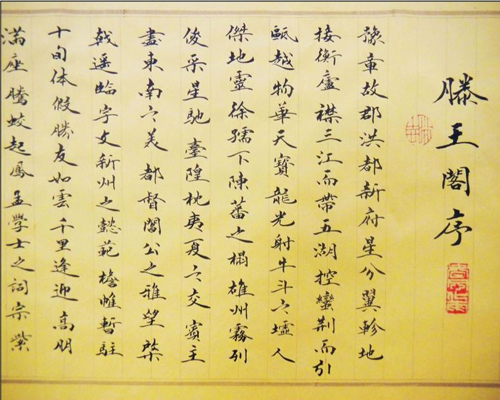 滕王閣序
豫章故郡洪都新府星分翼軫地
接衡廬襟三江而帶五湖控蠻荊而引
甌越物華天寶龍光射牛斗之墟人
傑地靈徐孺下陳蕃之榻雄州霧列
俊采星馳臺隍枕夷夏之交賓主
盡東南之美都督閻公之雅望棨
戟遙臨宇文新州之懿範襜帷暫駐
十旬休假勝友如雲千里逢迎高朋
滿座騰蛟起鳳孟學士之詞宗紫